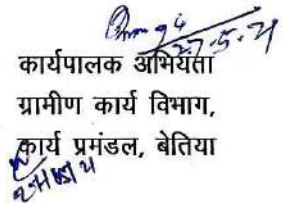 27-5-21
कार्यपालक अभियंता
ग्रामीण कार्य विभाग,
कार्य प्रमंडल, बेतिया